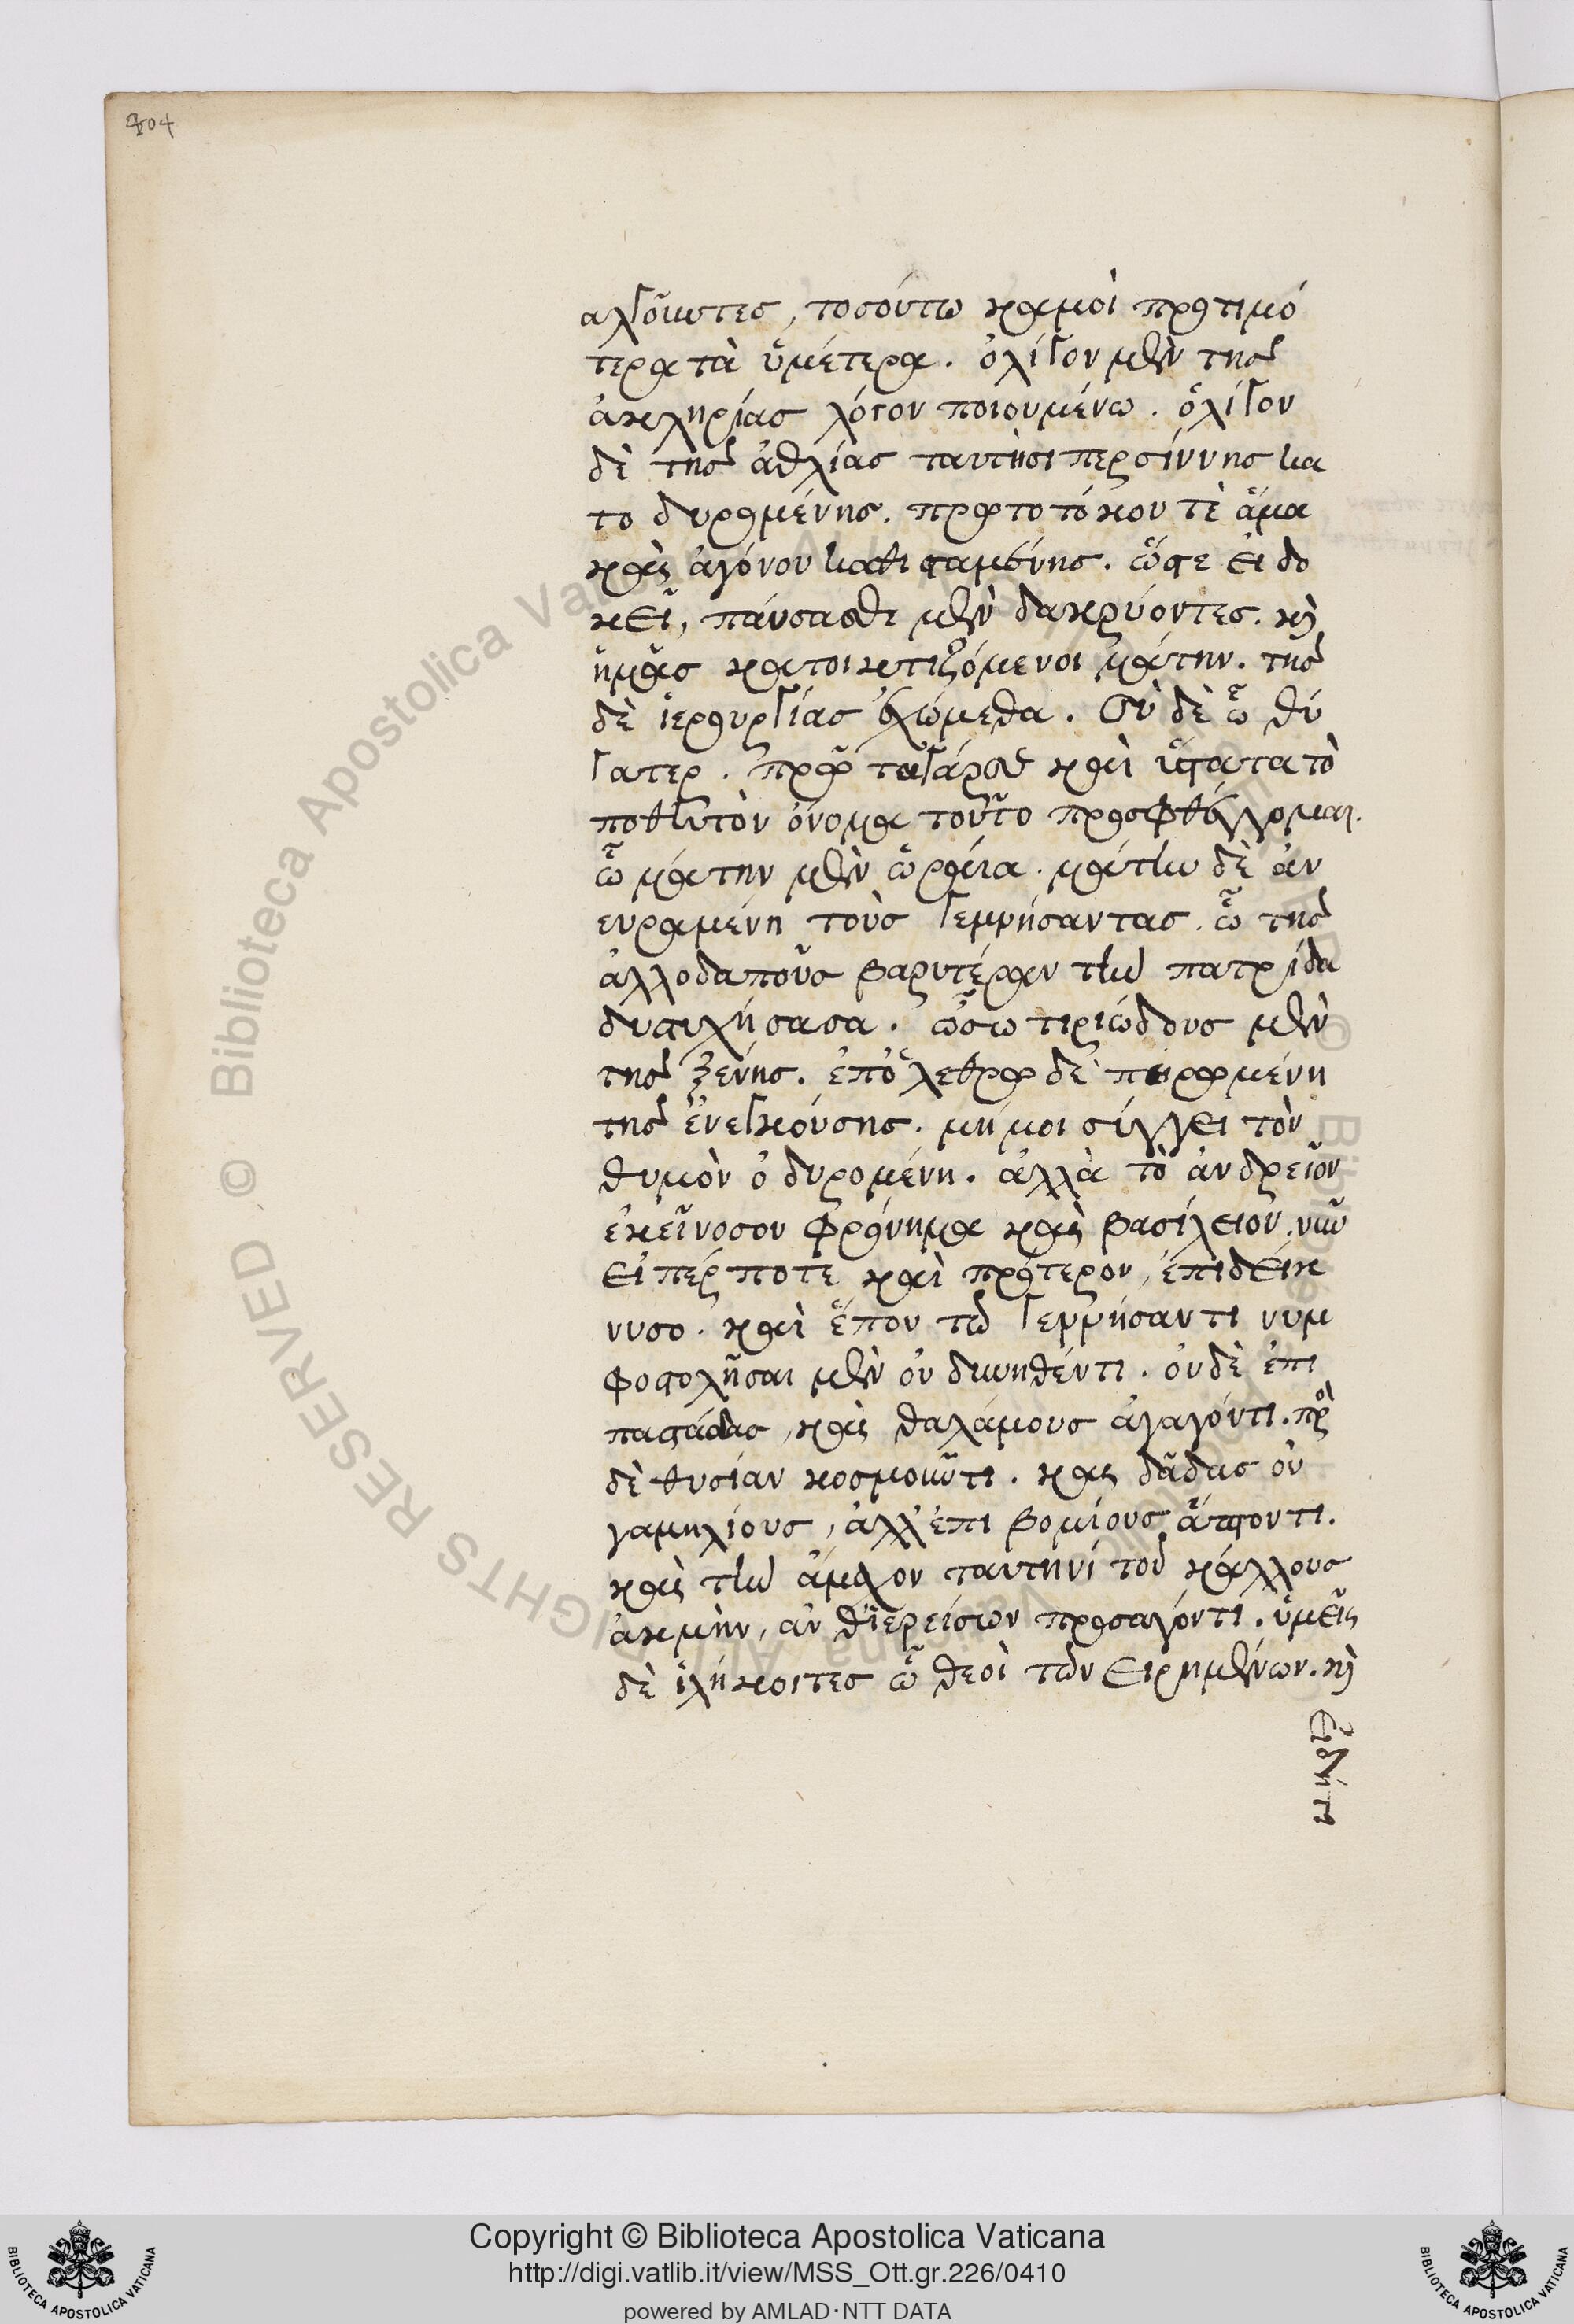 404
αλγοῦντες, τοσούτω καμοὶ προτιμό
τερα τὰ ὑμέτερα. ὀλίγον μὲν της
ἀκληρίας λόγον ποιουμένω. ὀλίγον
δὲ της ἀθλίας ταυτησὶ περσίννης κα
το δυρομένης. πρωτοτόκου τὲ ἅμα
καὶ ἀγόνου καθισταμένης. ὥστε ει δο
κεῖ, παύσασθε μὲν δακρύοντες. καὶ
ἡμᾶς κατοικτιζόμενοι μάτην. της
δὲ ἱερουργίας ἐχώμεθα. Σὺ δὲ ὦ θύ
γατερ. πρῶτα γάρ σε καὶ ὕστατα τὸ
ποθητὸν ὄνομα τοῦτο προσφθέγγομαι.
ὦ μάτην μὲν ὡραία. μάτην δὲ ἀν
ευραμένη τοὺς γεννήσαντας. ὦ της
ἀλλοδαπους βαρυτέραν τὴν πατρίδα
δυστυχήσασα. ὦ σωτηριώδους μὲν
της ξένης. ἐπ' ὀλέθρω δὲ πειραμένη
της ἐνεγκούσης. μή μοι σύγχει τὸν
θυμὸν ὀδυρομένη. ἀλλὰ τὸ ἀνδρεῖον
ἐκεῖνο σου φρόνημα καὶ βασίλειον. νῦν
εἰπέρ ποτε καὶ πρότερον, ἐπιδείκ
νυσο. καὶ ἕπου τῶ γεννήσαντι νυμ
φοστολῆσαι μὲν οὐ δυνηθέντι. οὐδὲ ἐπι
παστάδας, καὶ θαλάμους ἀγαγόντι. πρὸς
δὲ θυσίαν κοσμοῦντι. καὶ δᾶδας οὐ
γαμηλίους, ἀλλ' ἐπι βομίους ἅπτοντι.
καὶ τὴν ἄμαχον ταυτηνί τοῦ κάλλους
ἀκμὴν, ἀνθ' ἱερείσων προσαγόντι. ὑμεῖς
δὲ ἱλήκοιτες ὦ θεοὶ τῶν εἰρημένων. καὶ
εἰδήτι
Copyright © Biblioteca Apostolica Vaticana
http://digi.vatlib.it/view/MSS_Ott.gr.226/0410
powered by AMLAD·NTT DATA